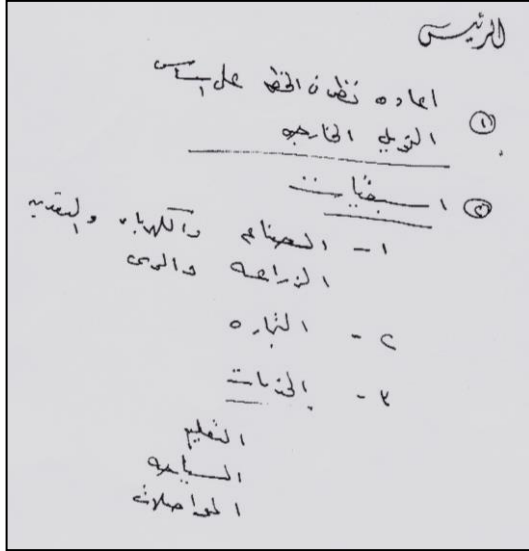 الرئيس
① اعاده نظر فى الخطه على اساس
التمويل الخارجى
② اسبقيات
١ - الصناعه والكهرباء والتعدين
الزراعه والرى
٢ - التجاره
٣ - الخدمات
التعليم
السياحه
المواصلات